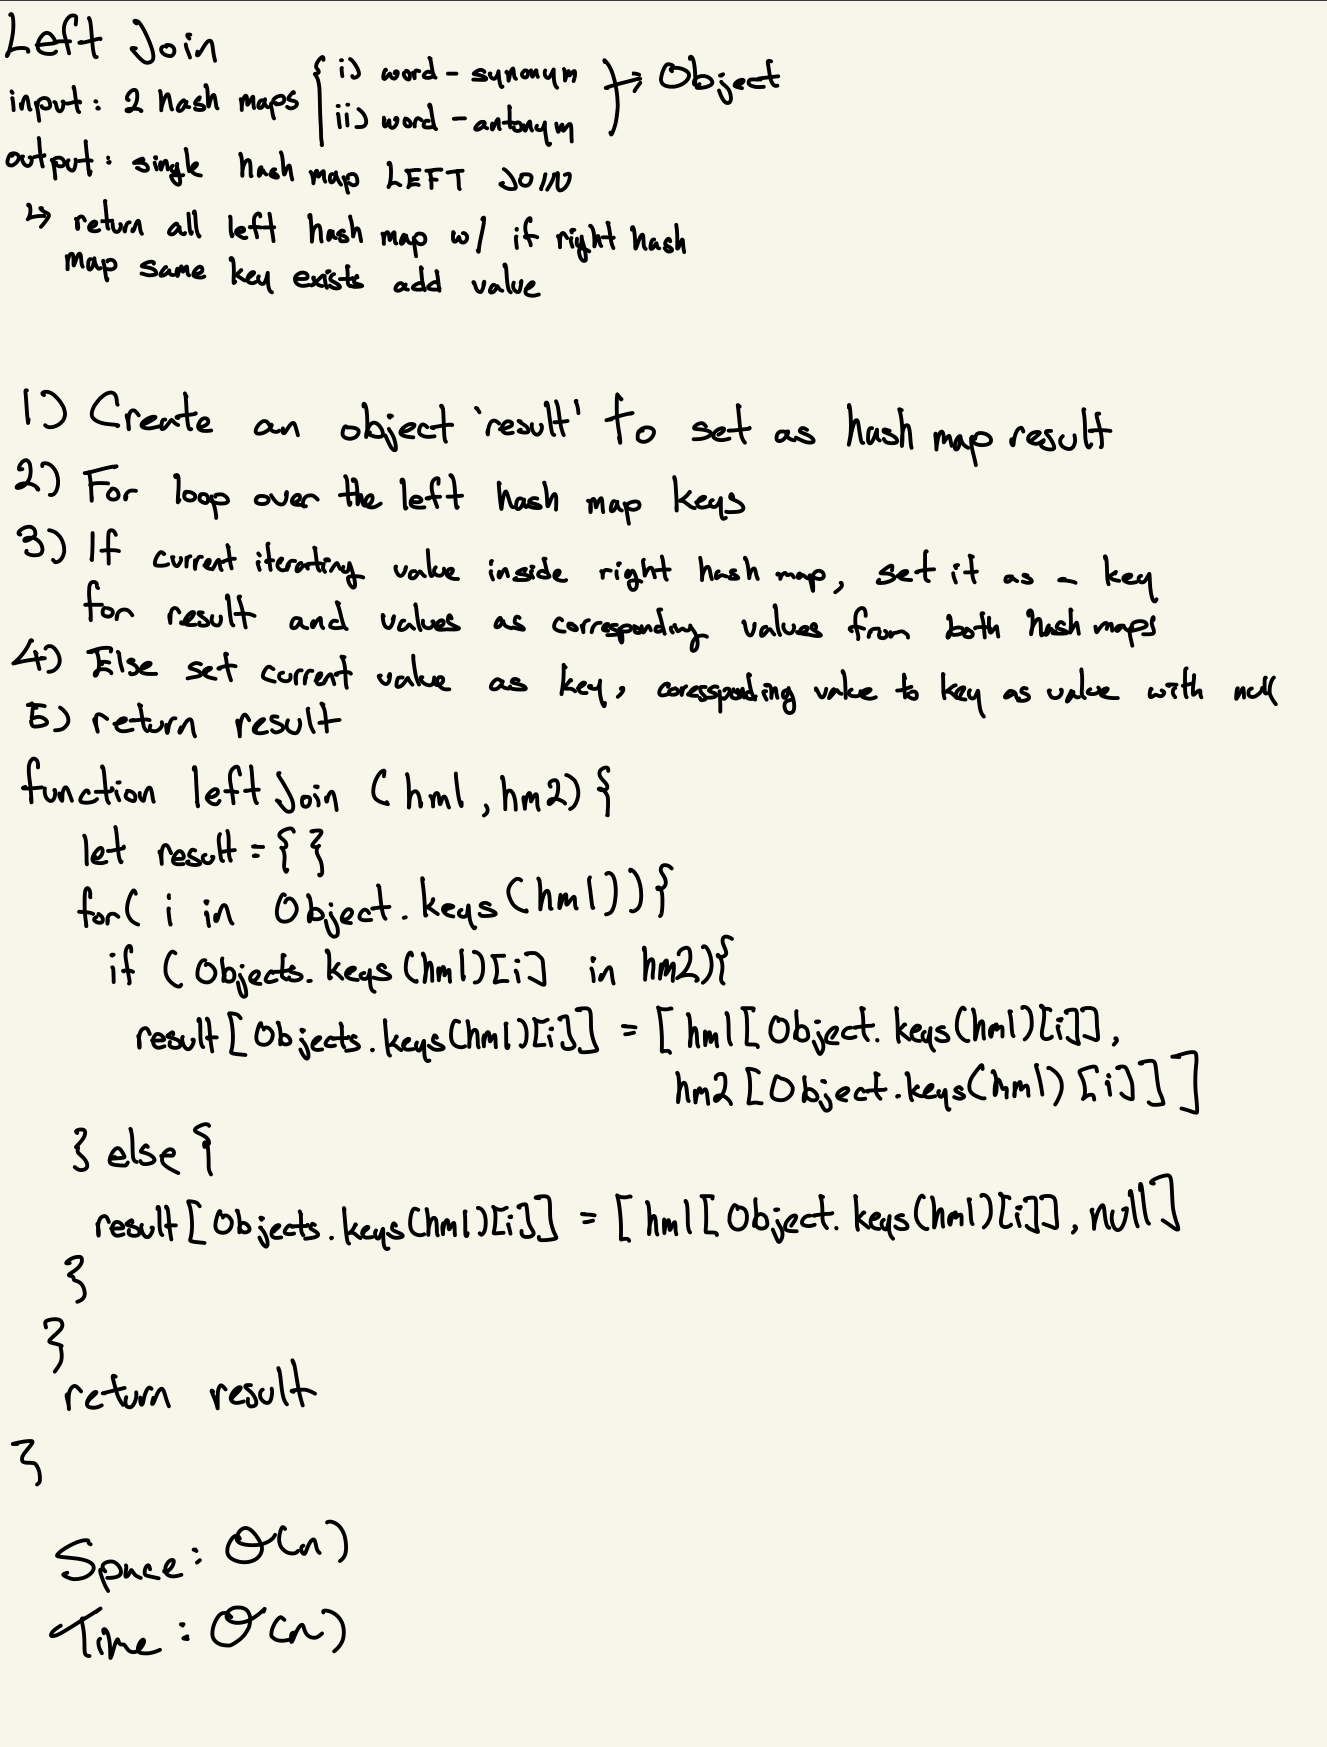 Left Join
input: 2 hash maps { i) word - synonym } → Object
ii) word - antonym
output: single hash map LEFT JOIN
↳ return all left hash map w/ if right hash
map same key exists add value
1) Create an object 'result' to set as hash map result
2) For loop over the left hash map keys
3) If current iterating value inside right hash map, set it as a key
for result and values as corresponding values from both hash maps
4) Else set current value as key, coressponding value to key as value with null
5) return result
function leftJoin (hm1, hm2) {
let result = { }
for( i in Object.keys(hm1)) {
if (Objects.keys(hm1)[i] in hm2){
result[Objects.keys(hm1)[i]] = [hm1[Object.keys(hm1)[i]],
hm2[Object.keys(hm1)[i]]]
} else {
result[Objects.keys(hm1)[i]] = [hm1[Object.keys(hm1)[i]], null]
}
}
return result
}
Space: O(n)
Time: O(n)